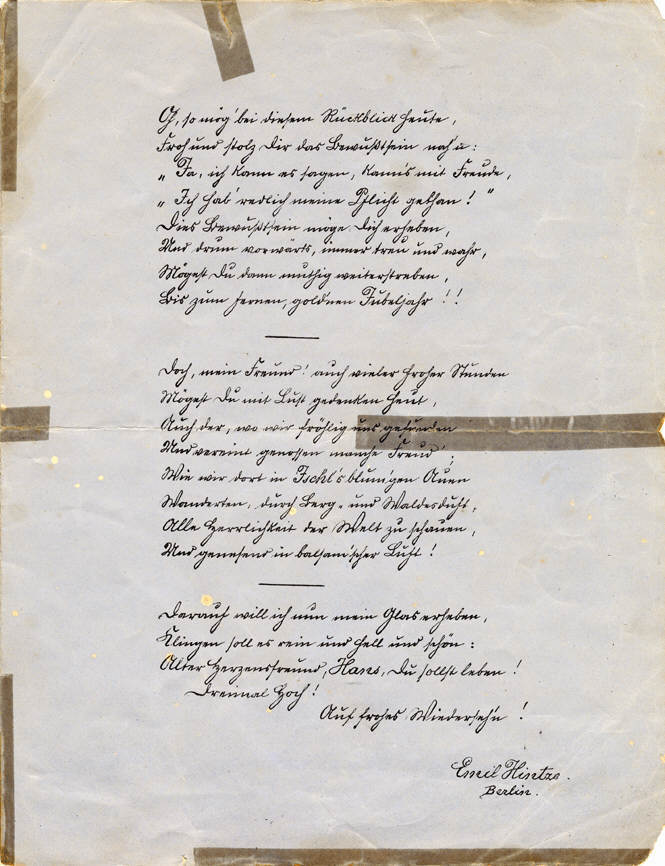 O, so mög' bei diesem Rückblick heute,
Froh und stolz Dir das Bewußtsein nah'n:
„Ja, ich kann es sagen, kann's mit Freude,
„Ich hab' redlich meine Pflicht gethan!"
Dies Bewußtsein möge Dich erheben,
Und drum vorwärts, immer treu und wahr,
Mögest Du dann muthig weiterstreben,
Bis zum fernen, goldnen Jubeljahr!!
Doch, mein Freund! auch vieler froher Stunden
Mögest Du mit Lust gedenken heut,
Auch der, wo wir fröhlig uns gefunden
Und vereint genossen manche Freud';
Wie wir dort in Ischl's blum'gen Auen
Wanderten, durch Berg- und Waldesduft,
Alle Herrlichkeit der Welt zu schauen,
Und genesend in balsam'scher Luft!
Darauf will ich nun mein Glas erheben,
Klingen soll es rein und hell und schön:
Alter Herzensfreund, Hans, Du sollst leben!
Dreimal Hoch!
Auf frohes Wiederseh'n!
Emil Hintze.
Berlin.